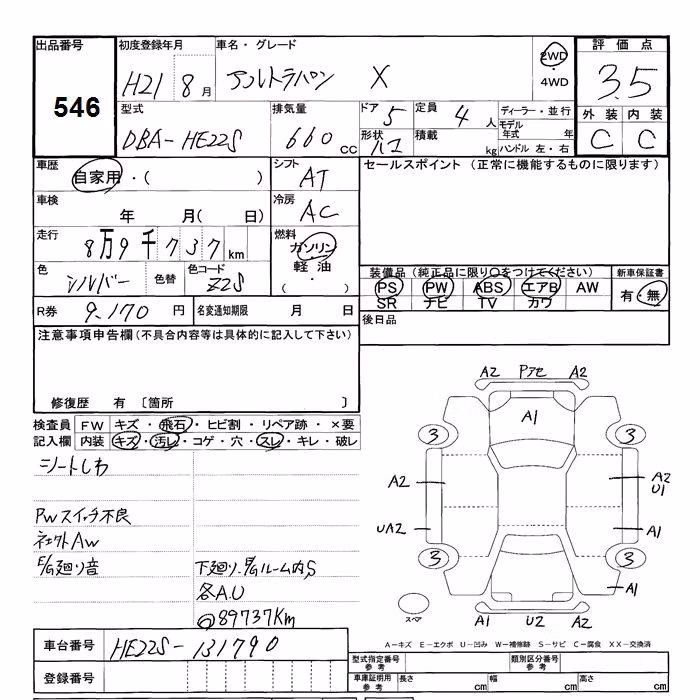 出品番号 初度登録年月 車名・グレード 評価点
546 H21 8月 アルトラパン X 2WD・4WD 3.5
外装 内装
C C
型式 排気量 ドア 定員 ディーラー・並行
DBA-HE22S 660cc 5 4人 モデル年式 年
形状 積載 kg ハンドル 左・右
車歴 シフト セールスポイント (正常に機能するものに限ります)
自家用・( ) AT
車検 冷房
年 月( 日) AC
走行 燃料
8万9千737km ガソリン
軽油
・( )
色 色替 色コード
シルバー Z2S
装備品 (純正品に限り○をつけてください) 新車保証書
PS PW ABS エアB AW 有・無
SR ナビ TV カワ
R券 9,170円 名変通知期限 月 日 後日品
注意事項申告欄(不具合内容等は具体的に記入して下さい)
修復歴 有 〔箇所 〕
検査員 FW キズ・飛石・ヒビ割・リペア跡・×要
記入欄 内装 キズ・汚レ・コゲ・穴・スレ・キレ・破レ
シートしわ
PWスイッチ不良
社外AW
E/G廻り音 下廻り、E/Gルーム内S
各A.U
◎89737Km
A2 Pアセ A2
A1
3 3
A2 A2 U1
UA2 A1
3 3
A1
スペア A1 U2 A2
A-キズ E-エクボ U-凹み W-補修跡 S-サビ C-腐食 XX-交換済
車台番号 HE22S-131790
登録番号
型式指定番号 参考 類別区分番号 参考
車庫証明用 参考 長さ cm 幅 cm 高さ cm